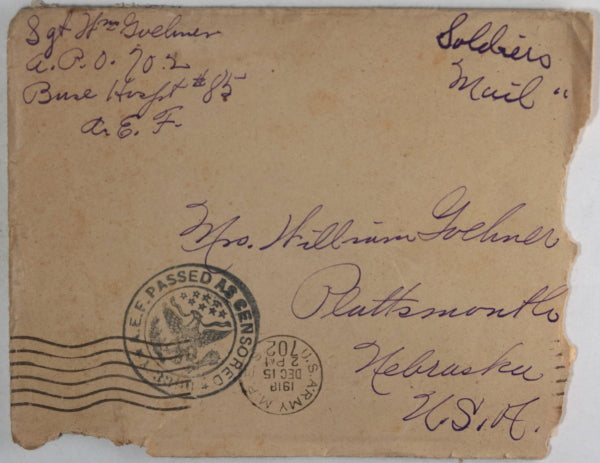 Sgt Wm Goehner
A.P.O. 702
Base Hospt #85
A. E. F.
Soldiers
Mail "
Mrs. William Goehner
Plattsmouth
Nebraska
U.S.A.
A.E.F. PASSED AS CENSORED
U.S. ARMY M.P.
702
2 PM
DEC 15
1918